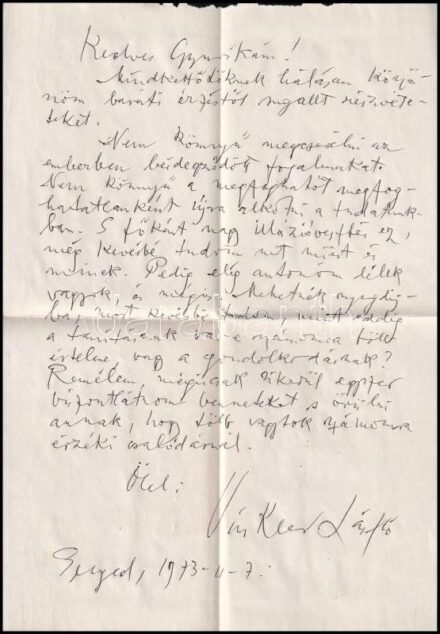 Kedves Gyuriкám!
Mindkettőtöknek hálásan köszö-
nöm baráti érzéstől sugallt részvéte-
teket.
Nem könnyű megcserélni az
emberben beidegződött fogalmakat.
Nem könnyű a megfoghatót megfog-
hatatlanként újra alkotni a tudatunk-
ban. S főként nagy illúzióvesztés ez,
még kevésbé tudom mit miért és
minek. Pedig elég autonom lélek
vagyok, és mégis. Mehetnék nyugdíj-
ba, most kevésbé tudom mint eddig
a tanításnak van-e számomra több
értelme, vagy a gondolkodásnak?
Remélem mégiscsak sikerül egyszer
viszontlátnom benneteket s örülni
annak, hogy több vagytok számomra
érzéki csalódásnál.
Ölel:
Vinkler László
Szeged, 1973-II-7.
darabanth